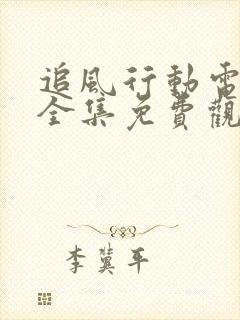 追風行動電
全集免費觀
李冀平